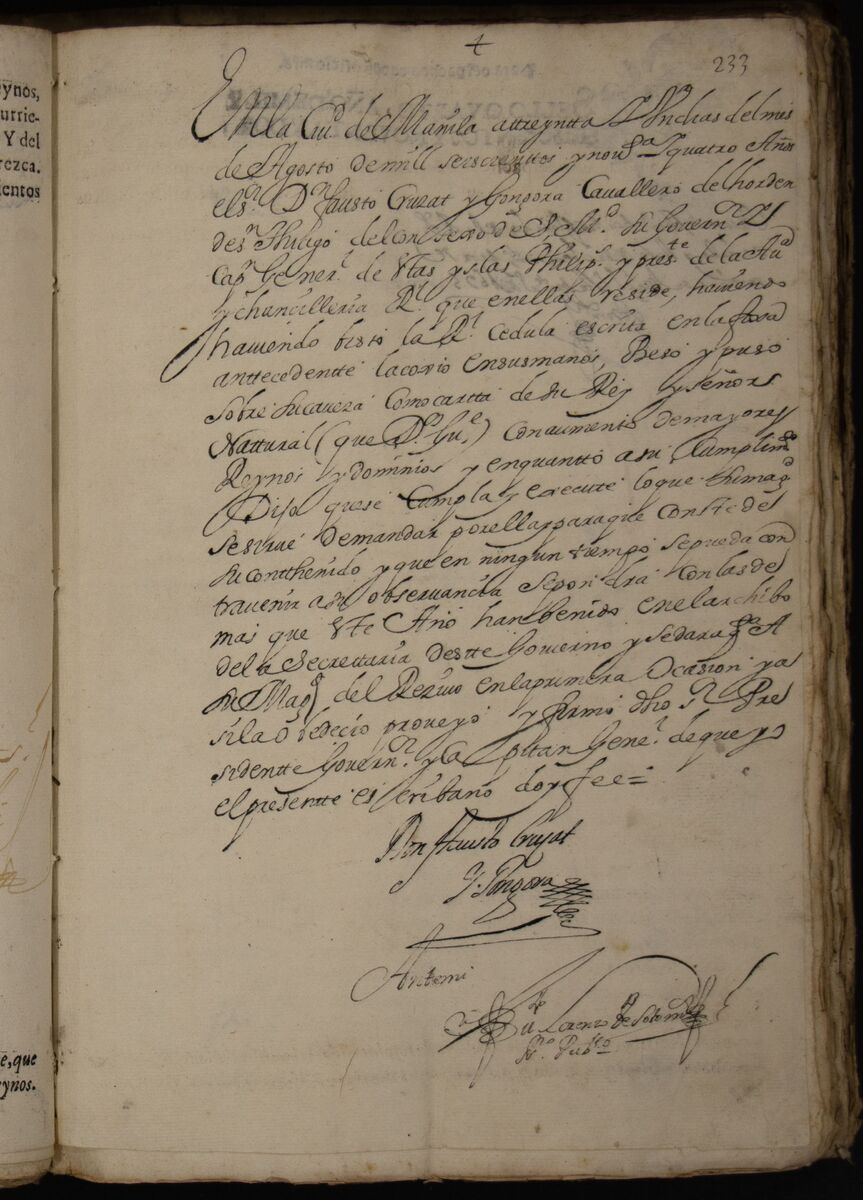 ynos,
urrie-
Y del
rezca.
ientos
e, que
ynos.
233
En la Ciu.d de Manila a treynta y Un dias del mes
de Agosto de mill seiscientos y nou.ta y quatro Años
el s.r D.n fausto Cruzat y Gongora Cavallero del horden
de s.n Thiago del consejo de S. M.d su Govern.or y
Cap.n Gener.l de estas yslas Philip.s y pres.te de la Au.a
y chancilleria R.l que en ellas reside, haviendo
haviendo bisto la R.l Cedula escrita en la foxa
anttecedentte la coxio en sus manos, Beso y puso
sobre su caveza como cartta de su Rey y señor
Nattural (que D.s Gu.e) con aumento de mayores
Reynos y dominios y en quantto a su Cumplim.to
Dijo que se Cumpla y execute lo que su mag.d
se sirue demandar por ella y para que Conste de
su conthenido y que en ningun tiempo se pueda con
travenir a su observancia se pondra con las de
mas que este Año han benido en el archibo
de la Secrettaria deste Govierno y se dara qta A
su Mag.d del Reciuo en la primera Ocasion y a
si la Obedecio proveyo y firmo dho s.r Pre
sidentte Govern.or y Ca pitan Gene.l de que yo
el presentte escribano doy fee =
Don fausto Cruzat
y Gongora
Antemi
Lorenzo
Pub.co